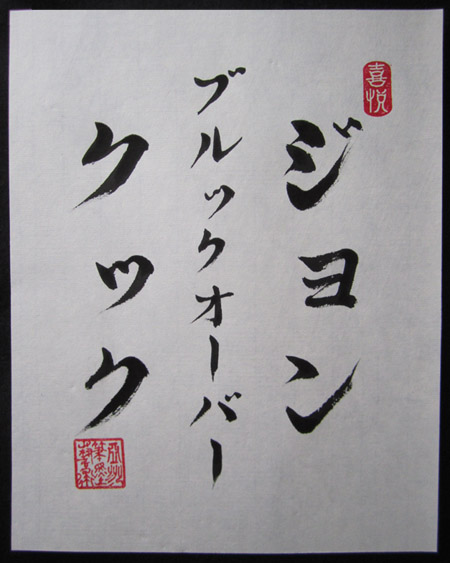 喜悦
ジョン
ブルックオーバー
クック